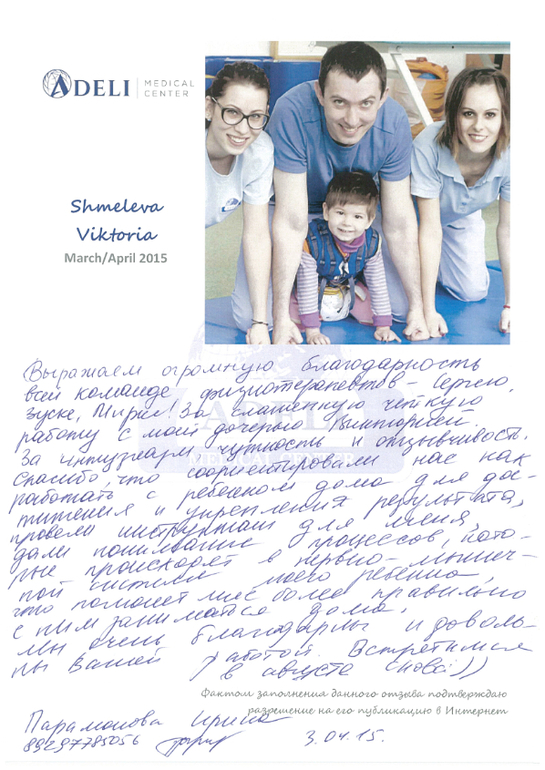 ADELI MEDICAL CENTER
Shmeleva
Viktoria
March/April 2015
Выражаем огромную благодарность
всей команде физиотерапевтов - Сергею,
Зуске, Мирке! За слаженную чёткую
работу с моей дочерью Викторией.
За энтузиазм, чуткость и отзывчивость.
Спасибо, что сориентировали нас как
работать с ребёнком дома для дос-
тижения и укрепления результата,
провели инструктаж для меня,
дали понимание процессов, кото-
рые происходят в нервно-мышеч-
ной системе моего ребёнка,
что поможет мне более правильно
с ним заниматься дома.
Мы очень благодарны и доволь-
ны Вашей работой. Встретимся
в августе снова:))
Фактом заполнения данного отзыва подтверждаю
разрешение на его публикацию в Интернет
Парамонова Ирина
89297785056
3.04.15.